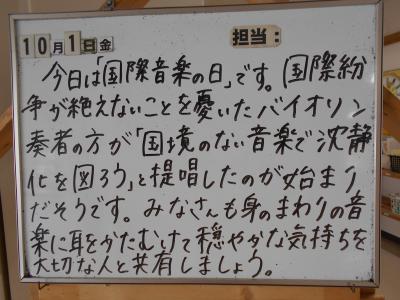 10月1日金 担当:
今日は「国際音楽の日」です。国際紛
争が絶えないことを憂いたバイオリン
奏者の方が「国境のない音楽で沈静
化を図ろう」と提唱したのが始まり
だそうです。みなさんも身のまわりの音
楽に耳をかたむけて穏やかな気持ちを
大切な人と共有しましょう。